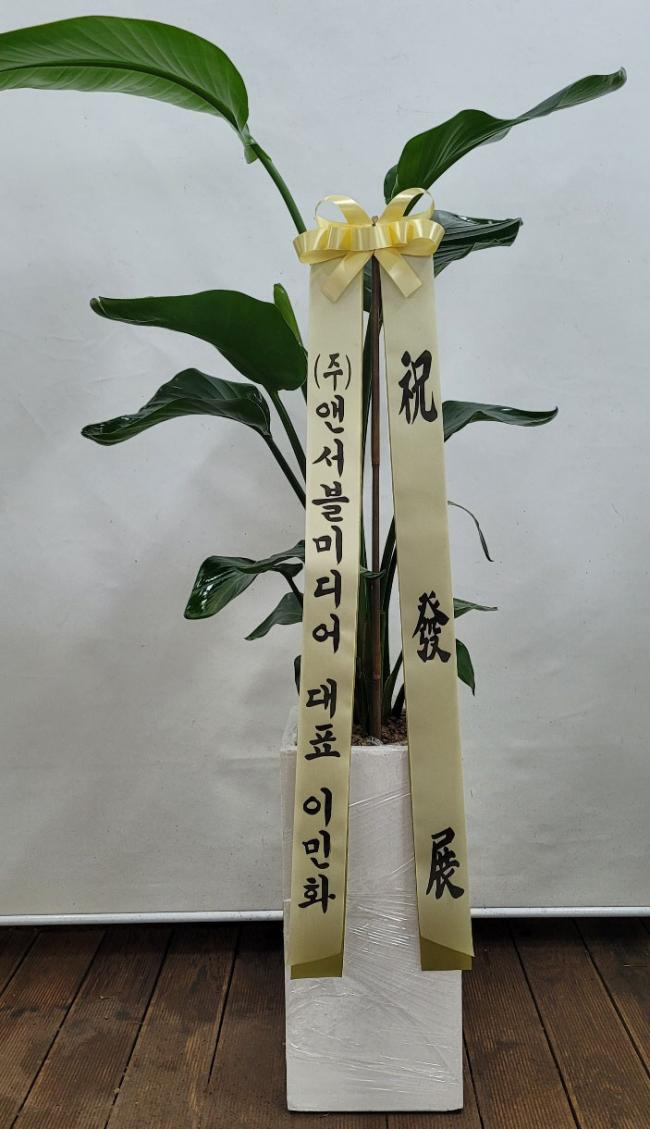 (주)앤서블미디어 대표 이민화
祝發展